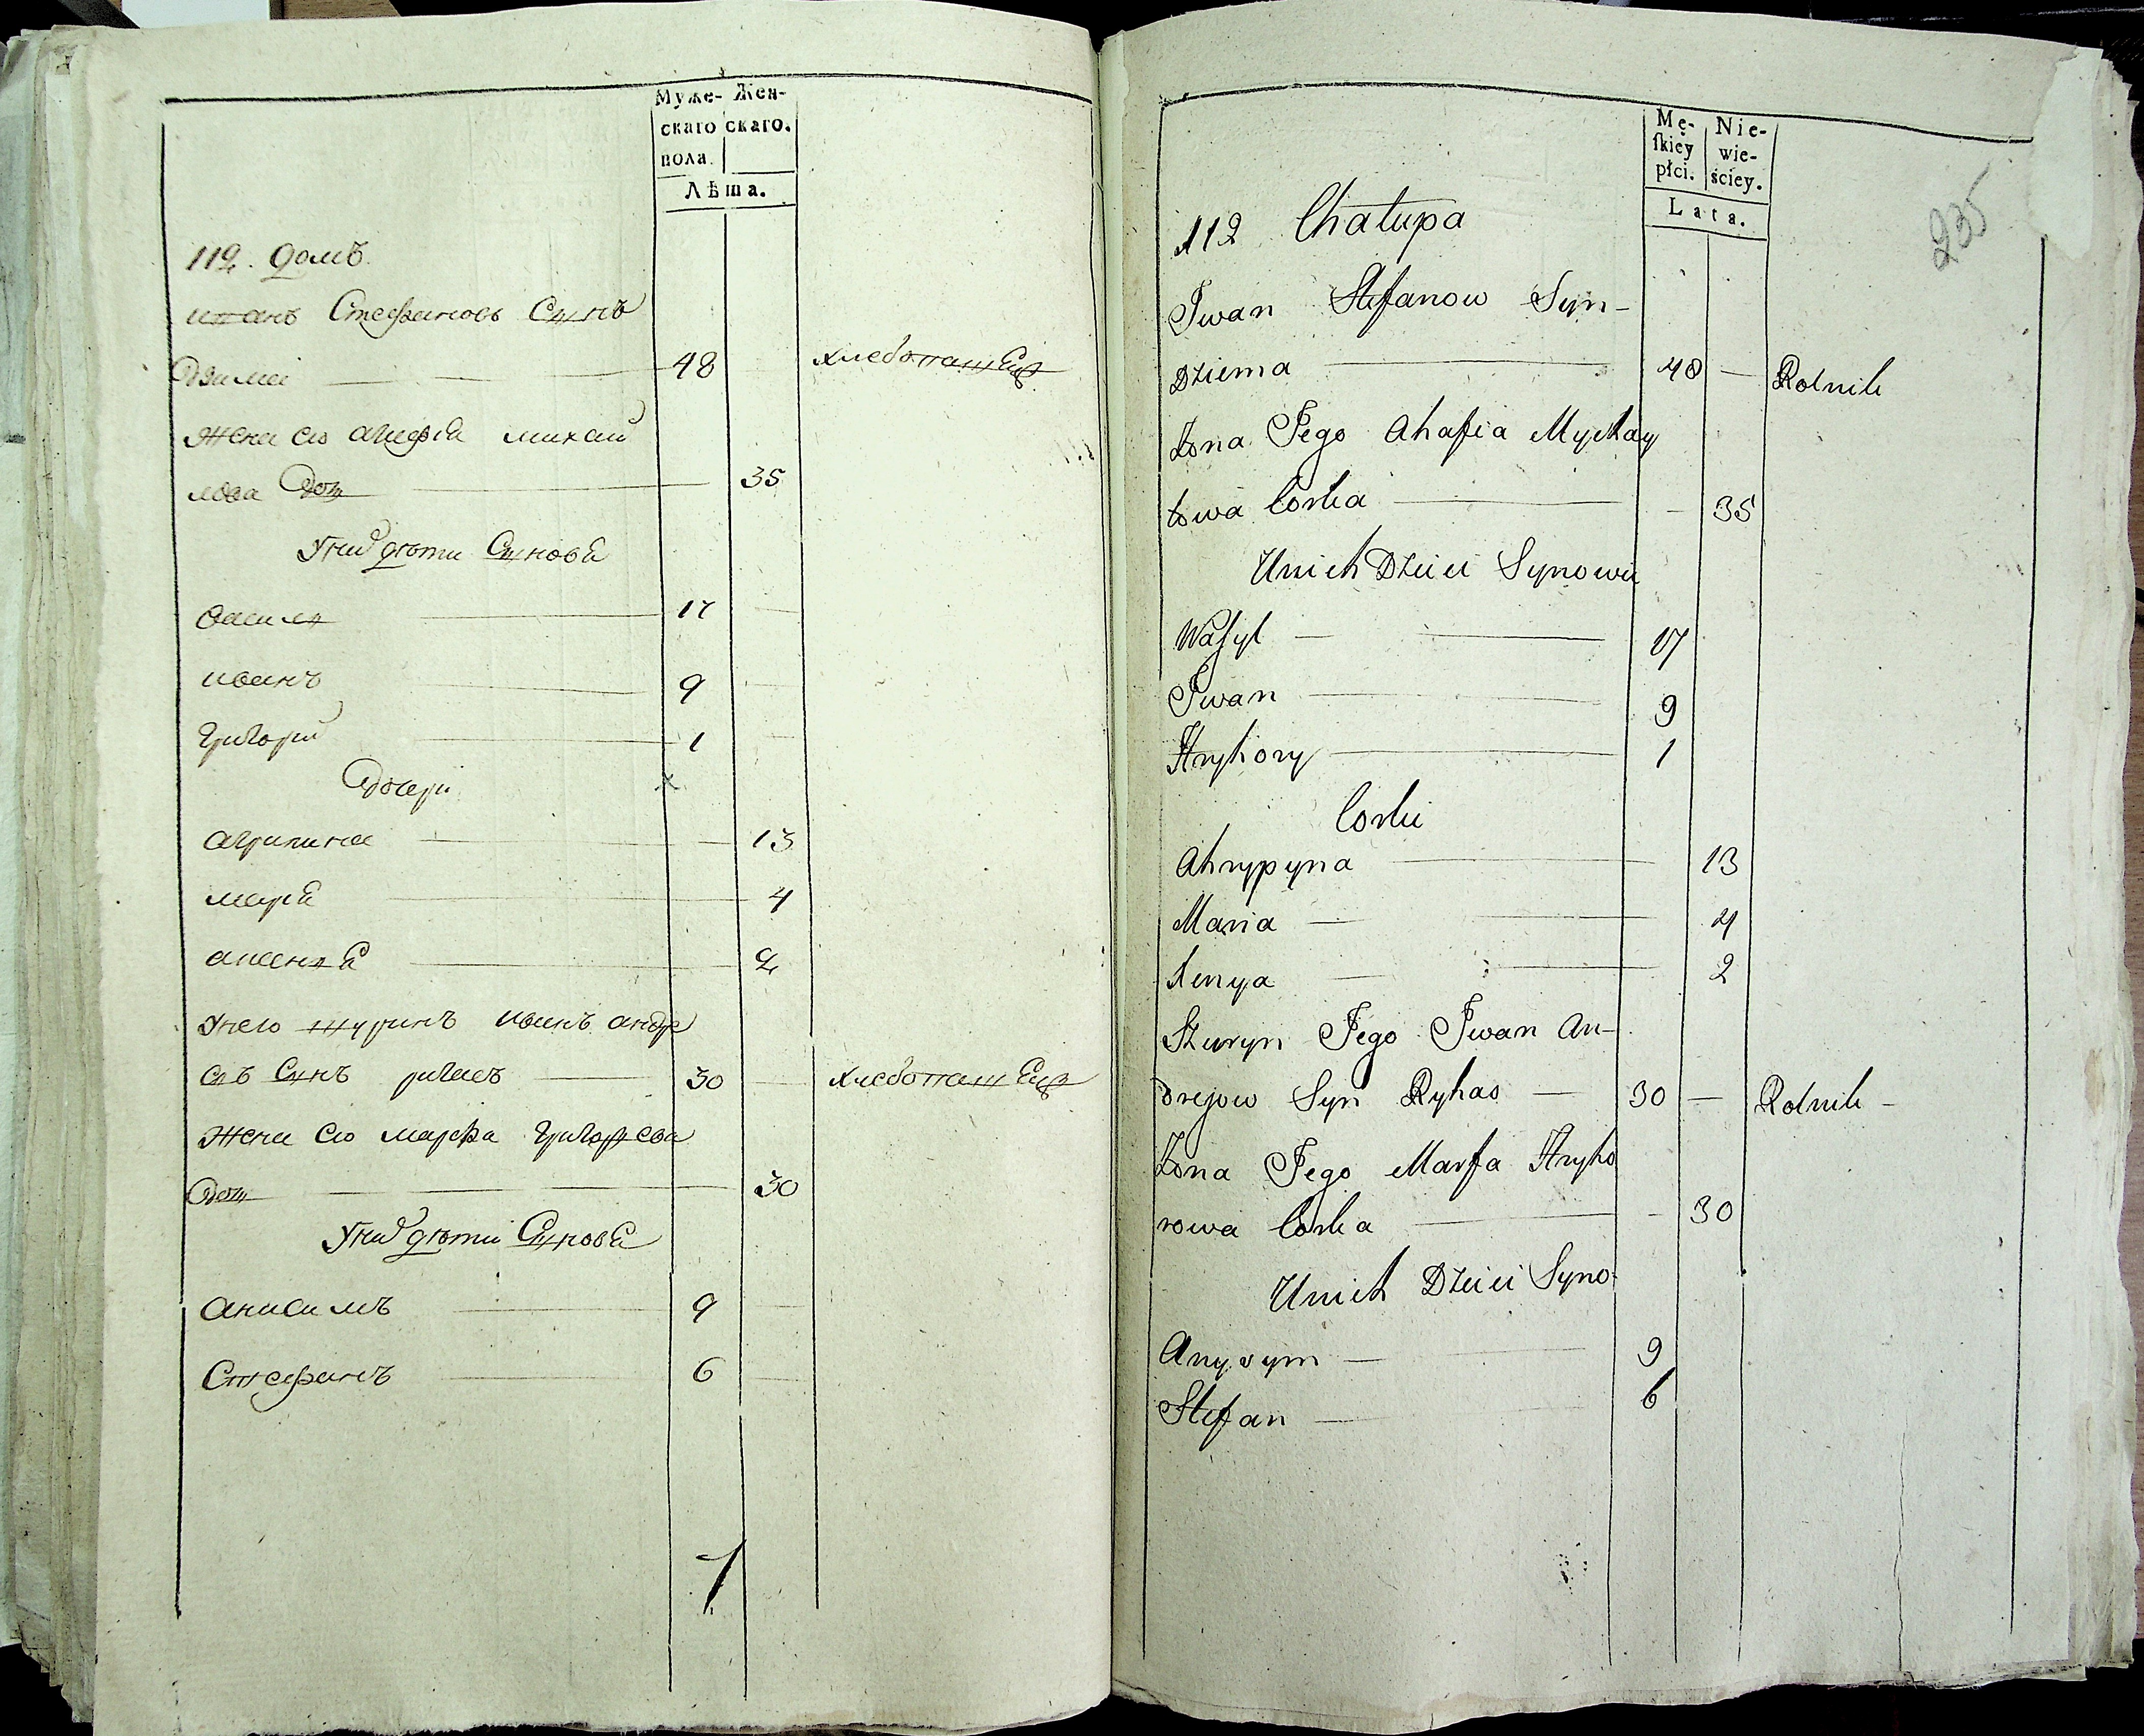 Муже- Жен-
скаго скаго.
пола.
Лѣта.
112. домъ
иванъ Стефановъ Сынъ
Дзима 48 хлебопашец
Жена его агафия михай
лова Доч 35
У них дѣти Сыновя
васил 17
иванъ 9
Григорий 1
Дочери
агрипина 13
мария 4
аксения 2
У него шуринъ иванъ андре
евъ Сынъ ригасъ 30 хлебопашец
Жена его марфа Григорева
Доч 30
У них дѣти Сыновя
анисимъ 9
Стефанъ 6
7
235
Mę- Nie-
ſkiey wie-
płci. ściey.
Lata.
112 Chałupa
Jwan Stefanow Syn-
Dziema 48 Rolnik
Żona Jego Ahafia Mychay
łowa Corka 35
U nich Dzieci Synowie
Waſyl 17
Jwan 9
Hryhory 1
Corki
Ahrypyna 13
Maria 4
Xenya 2
Szuryn Jego Jwan An-
drejow Syn Ryhas 30 Rolnik -
Żona Jego Marfa Hryho
rowa Corka 30
U nich Dzieci Syno-
Anysym 9
Stefan 6